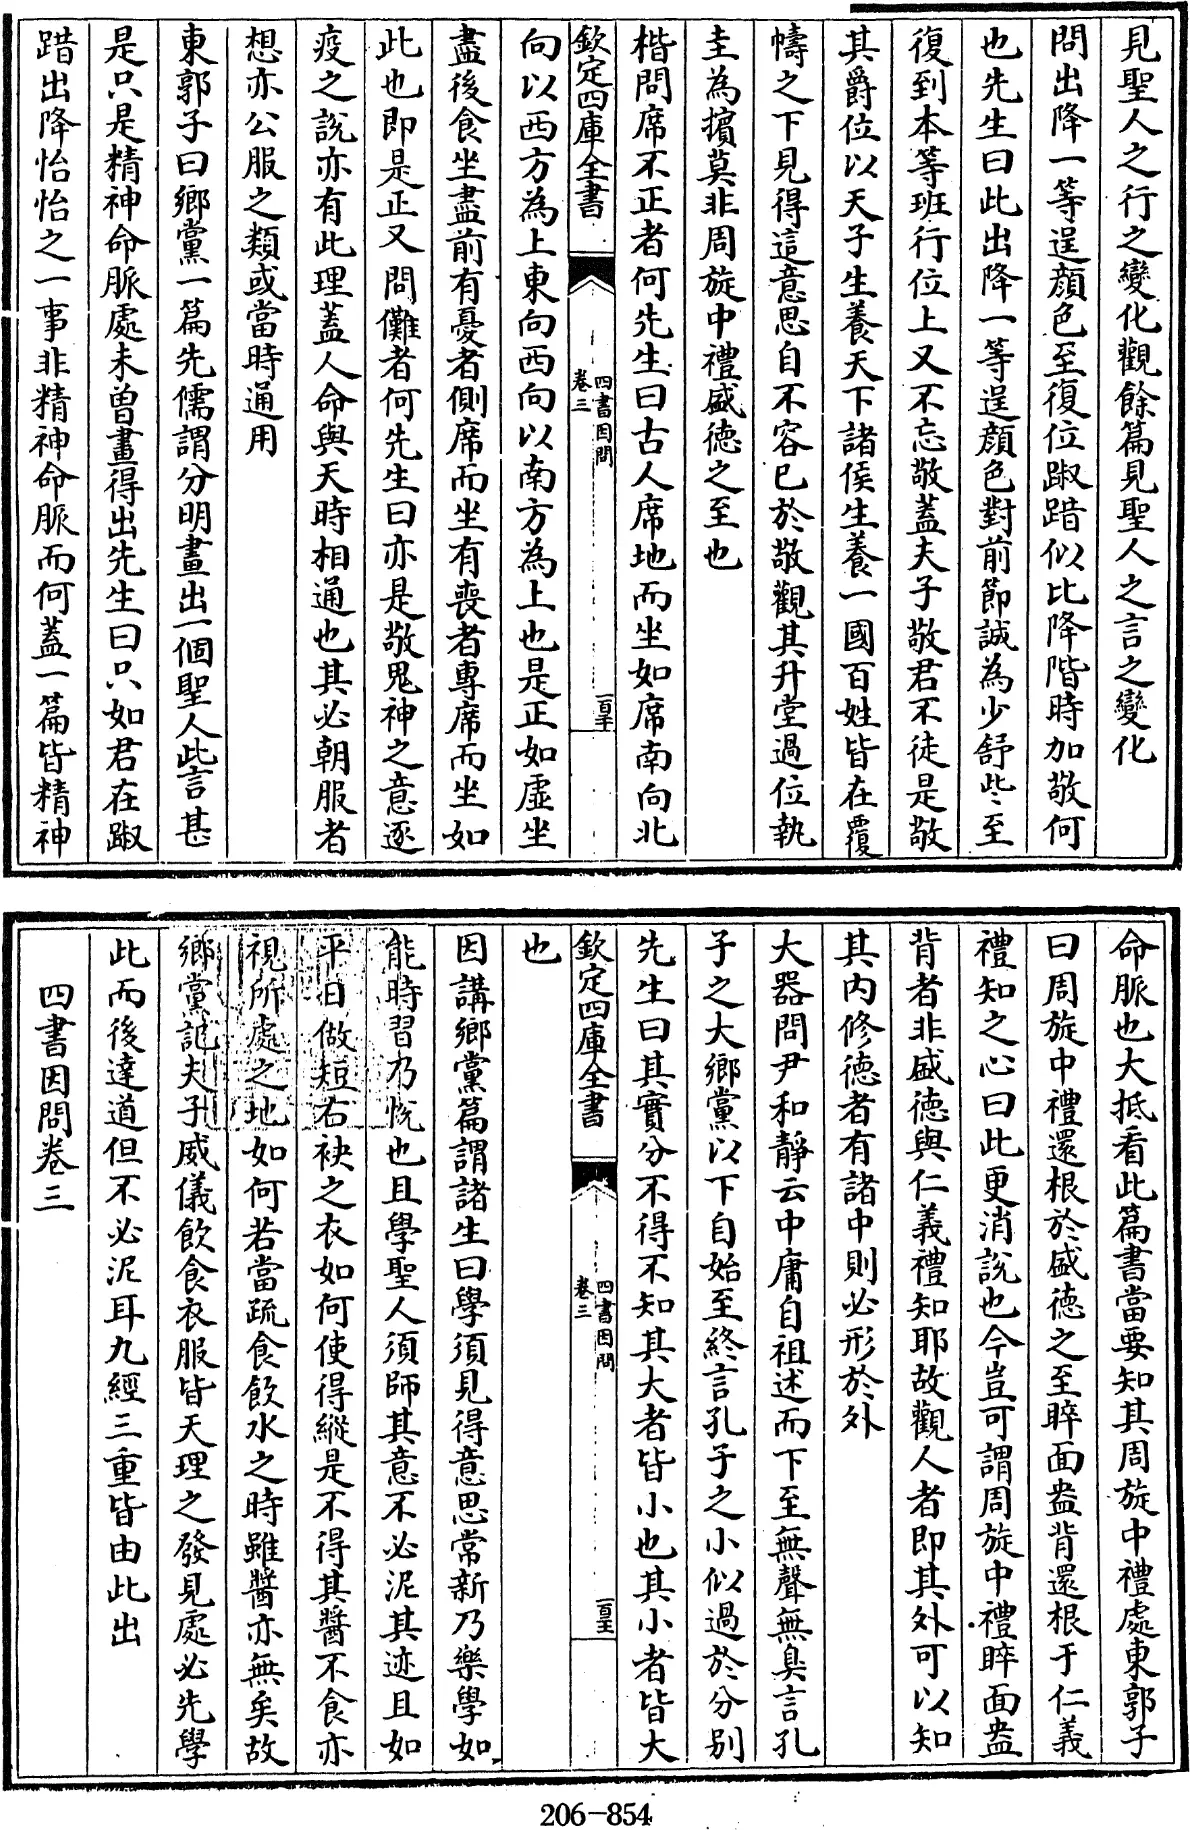 見聖人之行之變化觀餘篇見聖人之言之變化
問出降一等逞顔色至復位踧踖似比降階時加敬何
也先生曰此出降一等逞顔色對前節誠為少舒些至
復到本等班行位上又不忘敬蓋夫子敬君不徒是敬
其爵位以天子生養天下諸侯生養一國百姓皆在覆
幬之下見得這意思自不容已於敬觀其升堂過位執
圭為擯莫非周旋中禮盛德之至也
楷問席不正者何先生曰古人席地而坐如席南向北
欽定四庫全書
四書因問
卷三
一百二十
向以西方為上東向西向以南方為上也是正如虛坐
盡後食坐盡前有憂者側席而坐有喪者專席而坐如
此也即是正又問儺者何先生曰亦是敬鬼神之意逐
疫之說亦有此理蓋人命與天時相通也其必朝服者
想亦公服之類或當時通用
東郭子曰鄉黨一篇先儒謂分明畫出一個聖人此言甚
是只是精神命脈處未曽畫得出先生曰只如君在踧
踖出降怡怡之一事非精神命脈而何蓋一篇皆精神
命脈也大抵看此篇書當要知其周旋中禮處東郭子
曰周旋中禮還根於盛德之至睟面盎背還根于仁義
禮知之心曰此更消說也今豈可謂周旋中禮睟面盎
背者非盛德與仁義禮知耶故觀人者即其外可以知
其内修德者有諸中則必形於外
大器問尹和靜云中庸自祖述而下至無聲無臭言孔
子之大鄉黨以下自始至終言孔子之小似過於分別
先生曰其實分不得不知其大者皆小也其小者皆大
欽定四庫全書
四書因問
卷三
一百二十一
也
因講鄉黨篇謂諸生曰學須見得意思常新乃樂學如
能時習乃悅也且學聖人須師其意不必泥其迹且如
平日做短右袂之衣如何使得縱是不得其醬不食亦
視所處之地如何若當疏食飲水之時雖醬亦無矣故
鄉黨記夫子威儀飲食衣服皆天理之發見處必先學
此而後達道但不必泥耳九經三重皆由此出
四書因問卷三
206-854